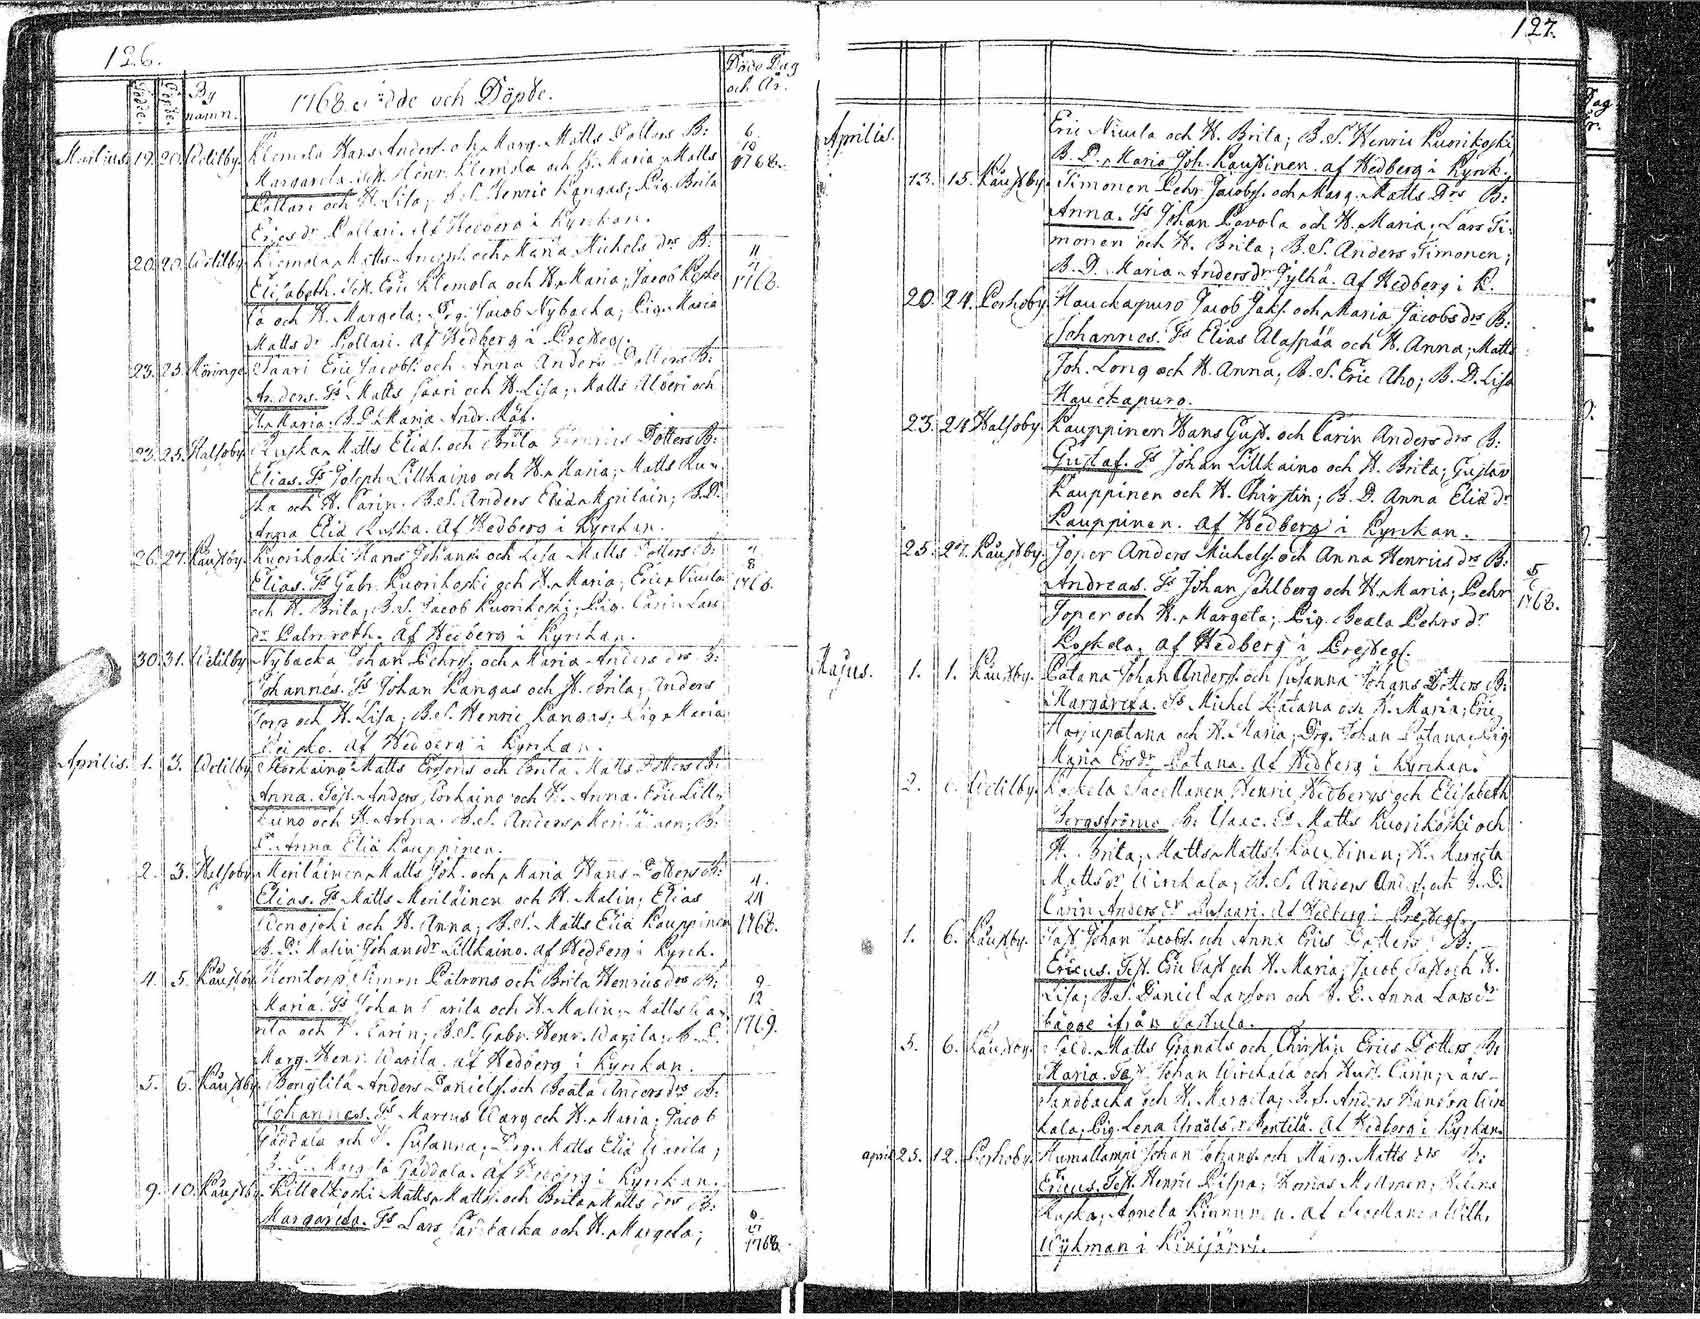 126.
Födde. Döpte. By namn. 1768 födde och Döpte. Döde Dag och År.
Martius. 19. 20. Wetilby. Klemola Hans Anders. och Marg. Matts Dotters B: 6.
Margareta. Test. Henr. Klemola och H. Maria, Matts 10 1768.
Pollari och H. Lisa; B.S. Henric Kangas; Pig. Brita
Erics dr Pollari. Af Hedberg i Kyrkan.
20. 20. Wetilby. Klemola Matts Anderss. och Maria Michels drs B: 11
Elisabeth. Test. Eric Klemola och H. Maria; Jacob
och H. Margeta; Drg. Jacob Nybacka; Pig. Maria 1768.
Matts dr Pollari. Af Hedberg i Presteg.
23. 25. Röringe Saari Eric Jacobs. och Anna Anders Dotters B:
Anders. Ts Matts Saari och H. Lisa; Matts Alberi och
H. Maria. B.D. Maria Andr. Räf.
23. 25. Halsoby. Ruska Matts Elias. och Brita Dotters B:
Elias. Ts Joseph Lillkaino och H. Maria; Matts Ru-
ska och H. Carin. B.S. Anders Eliæ Meriläin; B.D.
Anna Eliæ Ruska. Af Hedberg i Kyrkan.
26. 27. Kaustby. Kuorikoski Hans Johans. och Lisa Matts Dotters B:
Elias. Ts Gabr. Kuorikoski och H. Maria; Eric 8 1768.
och H. Brita; B.S. Jacob Kuorikoski; Pig. Carin Lars
dr Palmroth. Af Hedberg i Kyrkan.
30. 31. Wetilby Nybacka Johan Pehrs. och Maria Anders drs B:
Johannes. Ts Johan Kangas och H. Brita; Anders
Torp och H. Lisa; B.S. Henric Kangas; Pig. Maria
Af Hedberg i Kyrkan.
Aprilis. 1. 3. Wetilby Matts och Brita Matts Dotters B:
Anna. Test. Anders och H. Anna. Eric Lill-
kaino och H. Anna. B.S. Anders Meriläinen; B:
D. Anna Eliæ Kauppinen.
2. 3. Halsoby Meriläinen Matts Joh. och Maria Hans Dotters B:
Elias. Ts Matts Meriläinen och H. Malin; Elias 4. 24
Wenojoki och H. Anna; B.S. Matts Eliæ Kauppinen 1768.
B.D. Malin Johansdr Lillkaino. Af Hedberg i Kyrk.
4. 5. Kaustby Simon Patrons och Brita Henrics drs B: 9
Maria. Ts Johan Warila och H. Malin; Matts Wa- 12
rila och H. Carin; B.S. Gabr. Henr. Warila; B.D. 1769.
Marg. Henr. Warila. Af Hedberg i Kyrkan.
5. 6. Kaustby Bengtila Anders Daniels. och Beata Anders drs B:
Johannes. Ts Marcus Warg och H. Maria; Jacob
Gäddala och H. Susanna; Drg. Matts Eliæ Warila;
Margeta Gäddala. Af Hedberg i Kyrkan.
9. 10. Kaustby. Killalkoski Matts Matts. och Brita Matts drs B:
Margareta. Ts Lars Sandbacka och H. Margeta; 1768.
127.
Dag
Aprilis. Eric och H. Brita; B.S. Henric Kuorikoski
B.D. Maria Joh. Kaustinen. af Hedberg i Kyrk.
13. 15. Kaustby. Timonen Pehr Jacobs. och Marg. Matts Drs B:
Anna. Ts Johan Povola och H. Maria; Lars Ti-
monen och H. Brita; B.S. Anders Timonen;
B.D. Maria Andersdr Pylhä. Af Hedberg i K.
20. 24. Perhoby. Hauckapuro Jacob Jaks. och Maria Jacobs drs B:
Johannes. Ts Elias Alaspää och H. Anna; Matts
Joh. Long och H. Anna; B.S. Eric Aho; B.D. Lisa
Hauckapuro.
23. 24 Halsoby. Kauppinen Hans Gust. och Carin Anders drs B:
Gustaf. Ts Johan Lillkaino och H. Brita; Gustav
Kauppinen och H. Chirstin; B.D. Anna Eliæ dr
Kauppinen. Af Hedberg i Kyrkan.
25. 27. Kaustby. Joper Anders Michels. och Anna Henrics drs B: 5
Andreas. Ts Johan Sahlberg och H. Maria; Pehr
Joper och H. Margeta; Pig. Beata Pehrs dr 1768.
Koskela, Af Hedberg i Presteg.
Majus. 1. 1. Kaustby. Patana Johan Anders. och Susanna Johans Dotters B:
Margareta. Ts Michel Patana och H. Maria; Eric
Harjupatana och H. Maria; Drg. Johan Patana; Pig.
Maria Ersdr Patana. Af Hedberg i Kyrkan.
2. Wetilby. Koskela Sacellanen Henric Hedbergs och Elisabeth
Bergströms B: Isaac. Ts Matts Kuorikoski och
H. Brita; Matts Matts. Kaustinen; H. Margeta
Mattsdr Wirckala; B.S. Anders Anders. och B.D.
Carin Anders dr Pusaari. Af Hedberg i Presteg.
1. 6. Kaustby. Tast Johan Jacobs. och Anna Erics Dotters B:
Ericus. Test. Eric Tast och H. Maria; Jacob Tast och H.
Lisa; B.S. Daniel Larsson och B.D. Anna Larsdr
bägge ifrån
5. 6. Kaustby. Sold. Matts Granats och Chirstin Erics Dotters B:
Maria. Test. Johan Wirckala och Hust. Carin; Lars
Sandbacka och H. Margeta; B.S. Anders Hansson Wirc
kala; Pig. Lena Bentilä. Af Hedberg i Kyrkan.
april 25. 12. Perhoby. Humallampi Johan Johans. och Marg. Matts drs B:
Ericus. Test. Henric Tomas Helena
Ruska; Agneta Kinnunen. af Sacellanen Wilh.
Wijkman i Kivijärvi.